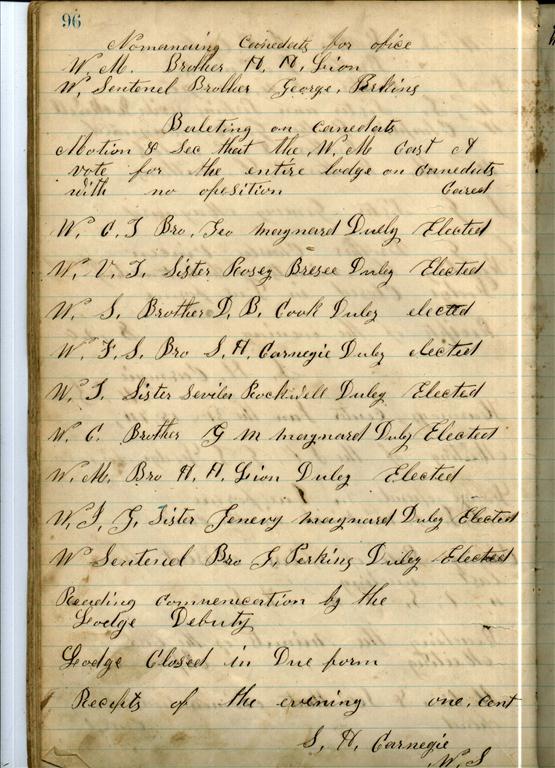 96
Nomanaing canedats for ofice
W. M. Brother H. H. Lion
W. Sentenel Brother George. Perkins
Baleting on canedats
Motion & Sec that the W. M cast A
vote for the entire lodge on canedats
with no oposition Cared
W. C. T Bro. Geo maynard Duley Elected
W. V. T. Sister Rosey Bresee Duley Elected
W. S. Brother D. B. Cook Duley elected
W. F. S. Bro S. H. Carnegie Duley elected
W. T. Sister Seviler Rockwell Duley Elected
W. C. Brother G M maynard Duly Elected
W. M. Bro H. H. Lion Duley Elected
W. I. G. Sister Jenevy maynard Duley Elected
W Sentenel Bro G. Perkins Duley Elected
Reading comunication by the
Lodge Debuty
Lodge Closed in Due form
Recepts of the evening one. cent
S. H. Carnegie
W. S